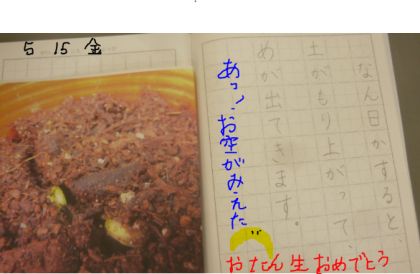 5 15 金
なん日かすると、
土がもり上がって、
めが出てきます。
あっ!お空がみえた
おたん生おめでとう